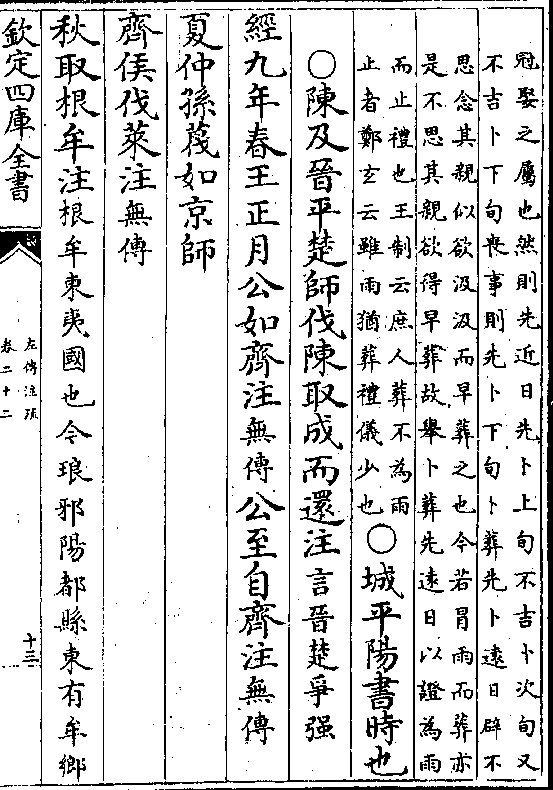 冠娶之屬也然則先近日先卜上旬不吉卜次旬又
不吉卜下旬喪事則先卜下旬卜葬先卜遠日辟不
思念其親似欲汲汲而早葬之也今若冒雨而葬亦
是不思其親欲得早葬故舉卜葬先遠日以證為雨
而止禮也王制云庶人葬不為雨
止者鄭玄云雖雨猶葬禮儀少也〇城平陽書時也
〇陳及晉平楚師伐陳取成而還注言晉楚爭强
經九年春王正月公如齊注無傳公至自齊注無傳
夏仲孫蔑如京師
齊侯伐萊注無傳
秋取根牟注根牟東夷國也今琅邪陽都縣東有牟鄉
欽定四庫全書
左傳注疏
卷二十二
十三